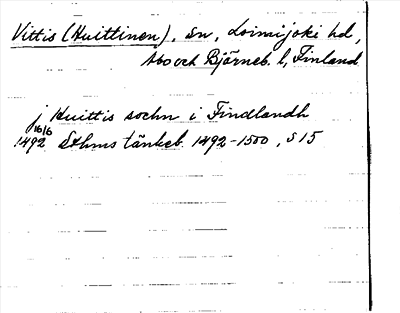 Vittis (Huittinen), sn, Loimijoki hd,
Åbo och Björneb. l, Finland
j Huittis sochn i Findlandh
16/6
1492 Sthms tänkeb. 1492-1500, S 15